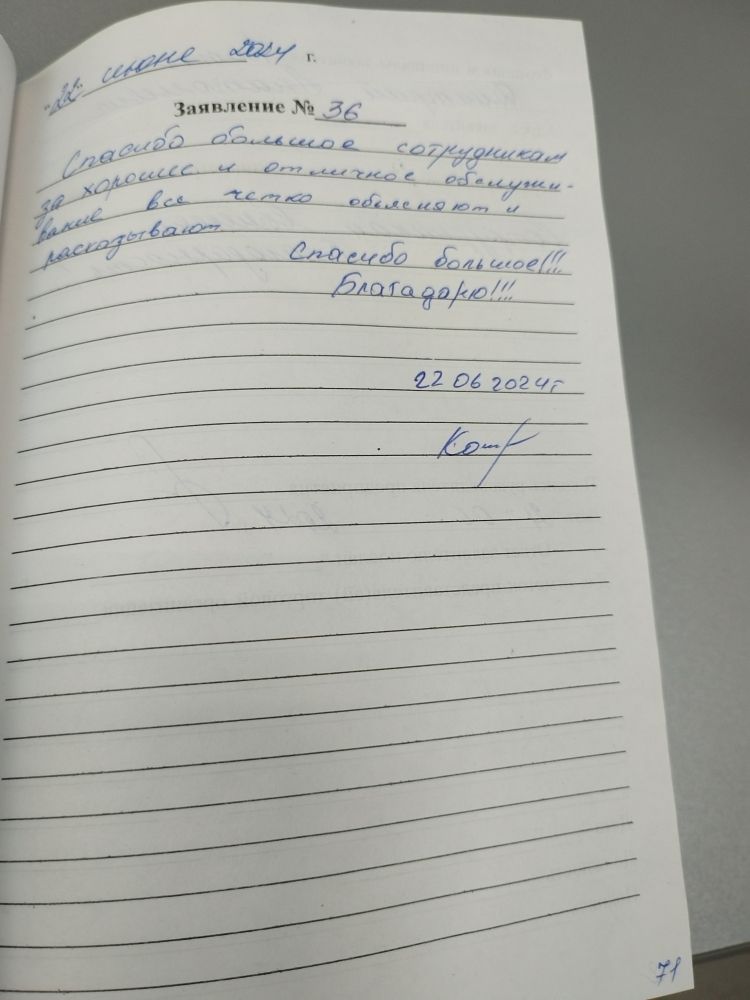 "22" июне 2024 г.
Заявление № 36
Спасибо большое сотрудникам
за хорошие и отличное обслужи-
вание все четко обьясняют и
расказывают
Спасибо большое!!!
Благадарю!!!
22 06 2024г
71